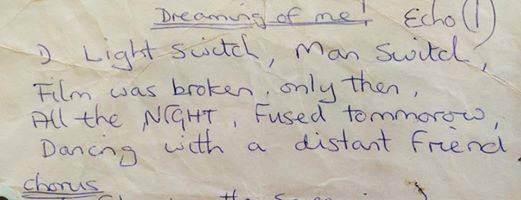 Dreaming of me! Echo (1)
1) Light switch, Man switch,
Film was broken, only then,
All the NIGHT, Fused tommorow,
Dancing with a distant friend
chorus
the